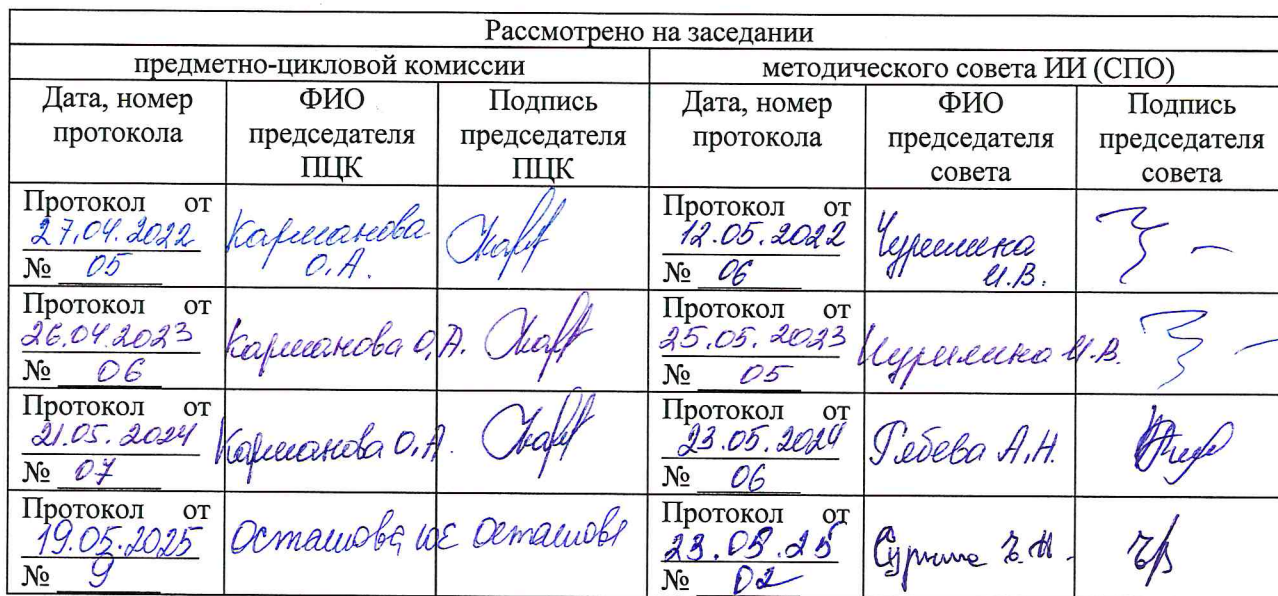 Рассмотрено на заседании
предметно-цикловой комиссии методического совета ИИ (СПО)
Дата, номер протокола ФИО председателя ПЦК Подпись председателя ПЦК Дата, номер протокола ФИО председателя совета Подпись председателя совета
Протокол от 27.04.2022 № 05 Карманова О.А. Протокол от 12.05.2022 № 06 Чурилина И.В.
Протокол от 26.04.2023 № 06 Карманова О.А. Протокол от 25.05.2023 № 05 Чурилина И.В.
Протокол от 21.05.2024 № 07 Карманова О.А. Протокол от 23.05.2024 № 06 А.Н.
Протокол от 19.05.2025 № 9 Осташова ЮЕ Протокол от 23.05.25 № 02